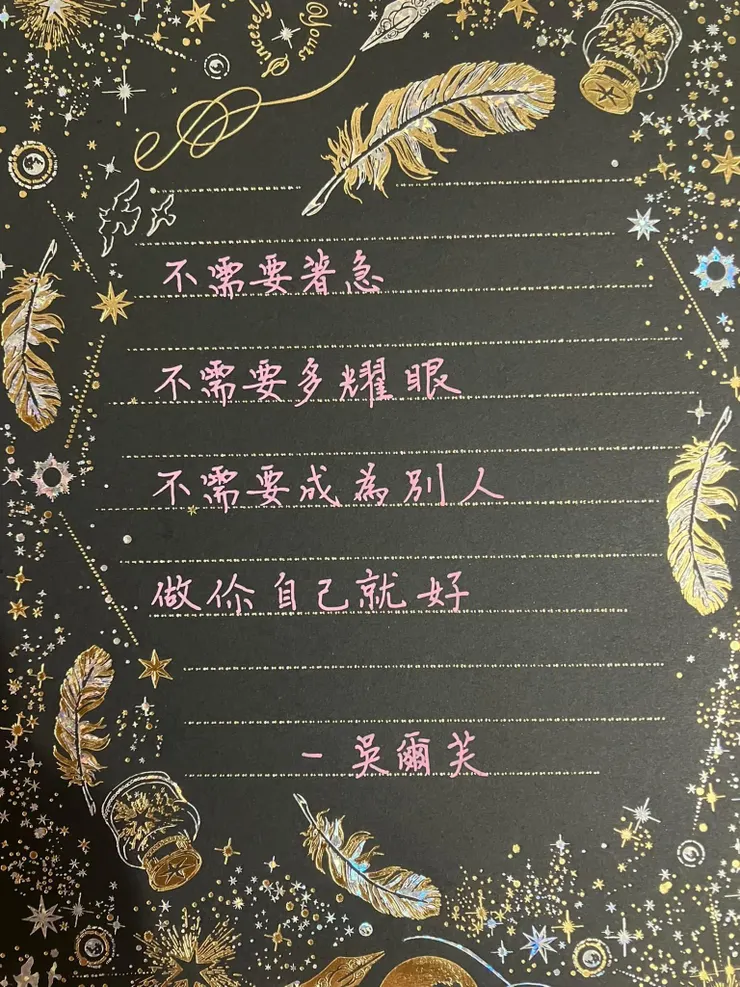 Sincerely
Yours
不需要著急
不需要多耀眼
不需要成為別人
做你自己就好
－吳爾芙